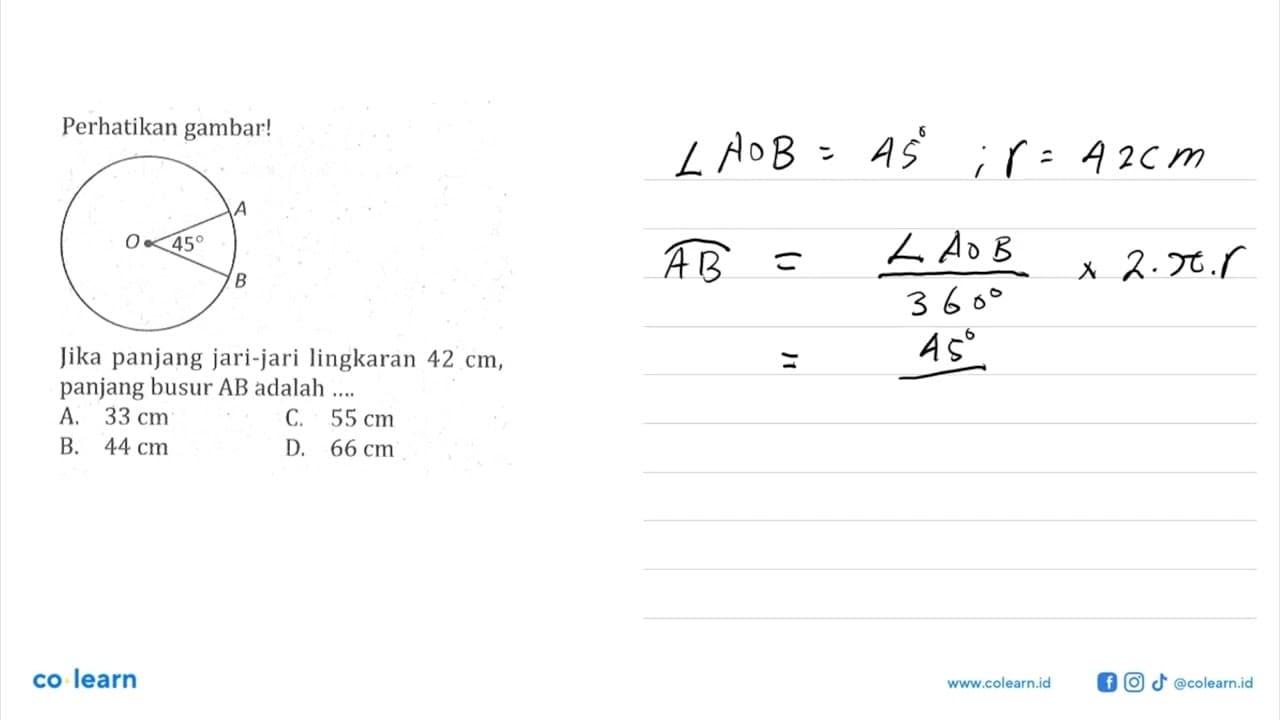 Perhatikan gambar!
A
O 45°
B
Jika panjang jari-jari lingkaran 42 cm,
panjang busur AB adalah ....
A. 33 cm C. 55 cm
B. 44 cm D. 66 cm
∠AOB = 45° ; r = 42cm
AB = ∠AOB × 2.π.r
360°
= 45°
co learn
www.colearn.id @colearn.id